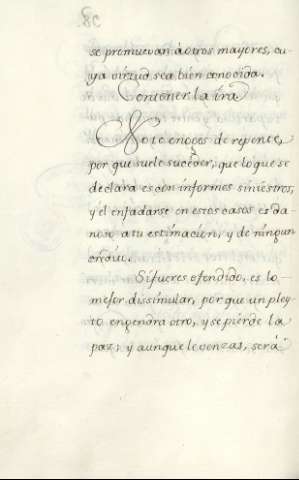 se premuevan á otros mayores, cu-
ya virtud sea bien conocida.
Contener la ira
No te enoges de repente,
por que suele suceder, que lo que se
declara es con informes siniestros,
y el enfadarse en estos casos es da-
noso a tu estimacion, y de ningun
Si fueres ofendido, es lo
mejor dissimular, por que un pley-
to engendra otro, y se pierde la
paz; y aunque le venzas, será